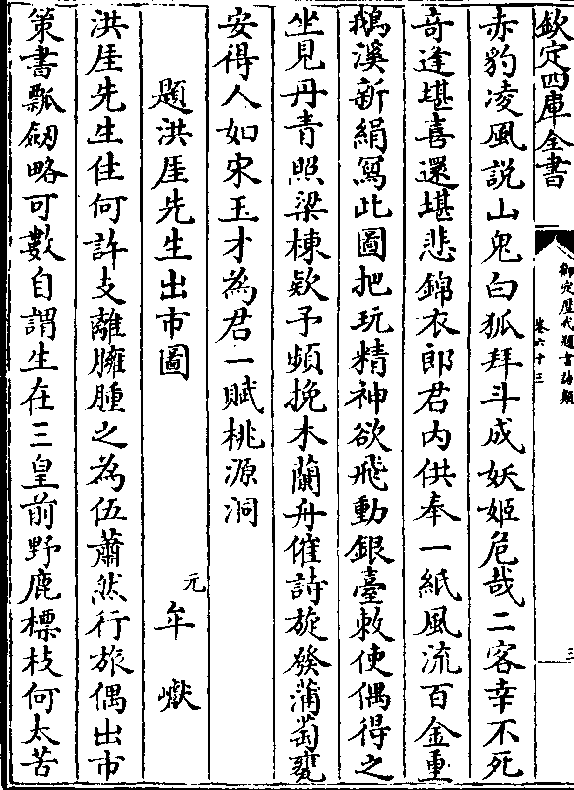 欽定四庫全書
御定歴代題畫詩類
卷六十三
三
赤豹凌風説山鬼白狐拜斗成妖姬危哉二客幸不死
竒逢堪喜還堪悲錦衣郎君内供奉一紙風流百金重
鵝溪新絹寫此圖把玩精神欲飛動銀臺敕使偶得之
坐見丹青照梁棟欵予頻挽木蘭舟催詩旋發蒲萄甕
安得人如宋玉才為君一賦桃源洞
題洪厓先生出市圖
元 牟巘
洪厓先生住何許支離臃腫之為伍蕭然行旅偶出市
策書瓢劒略可數自謂生在三皇前野鹿標枝何太苦